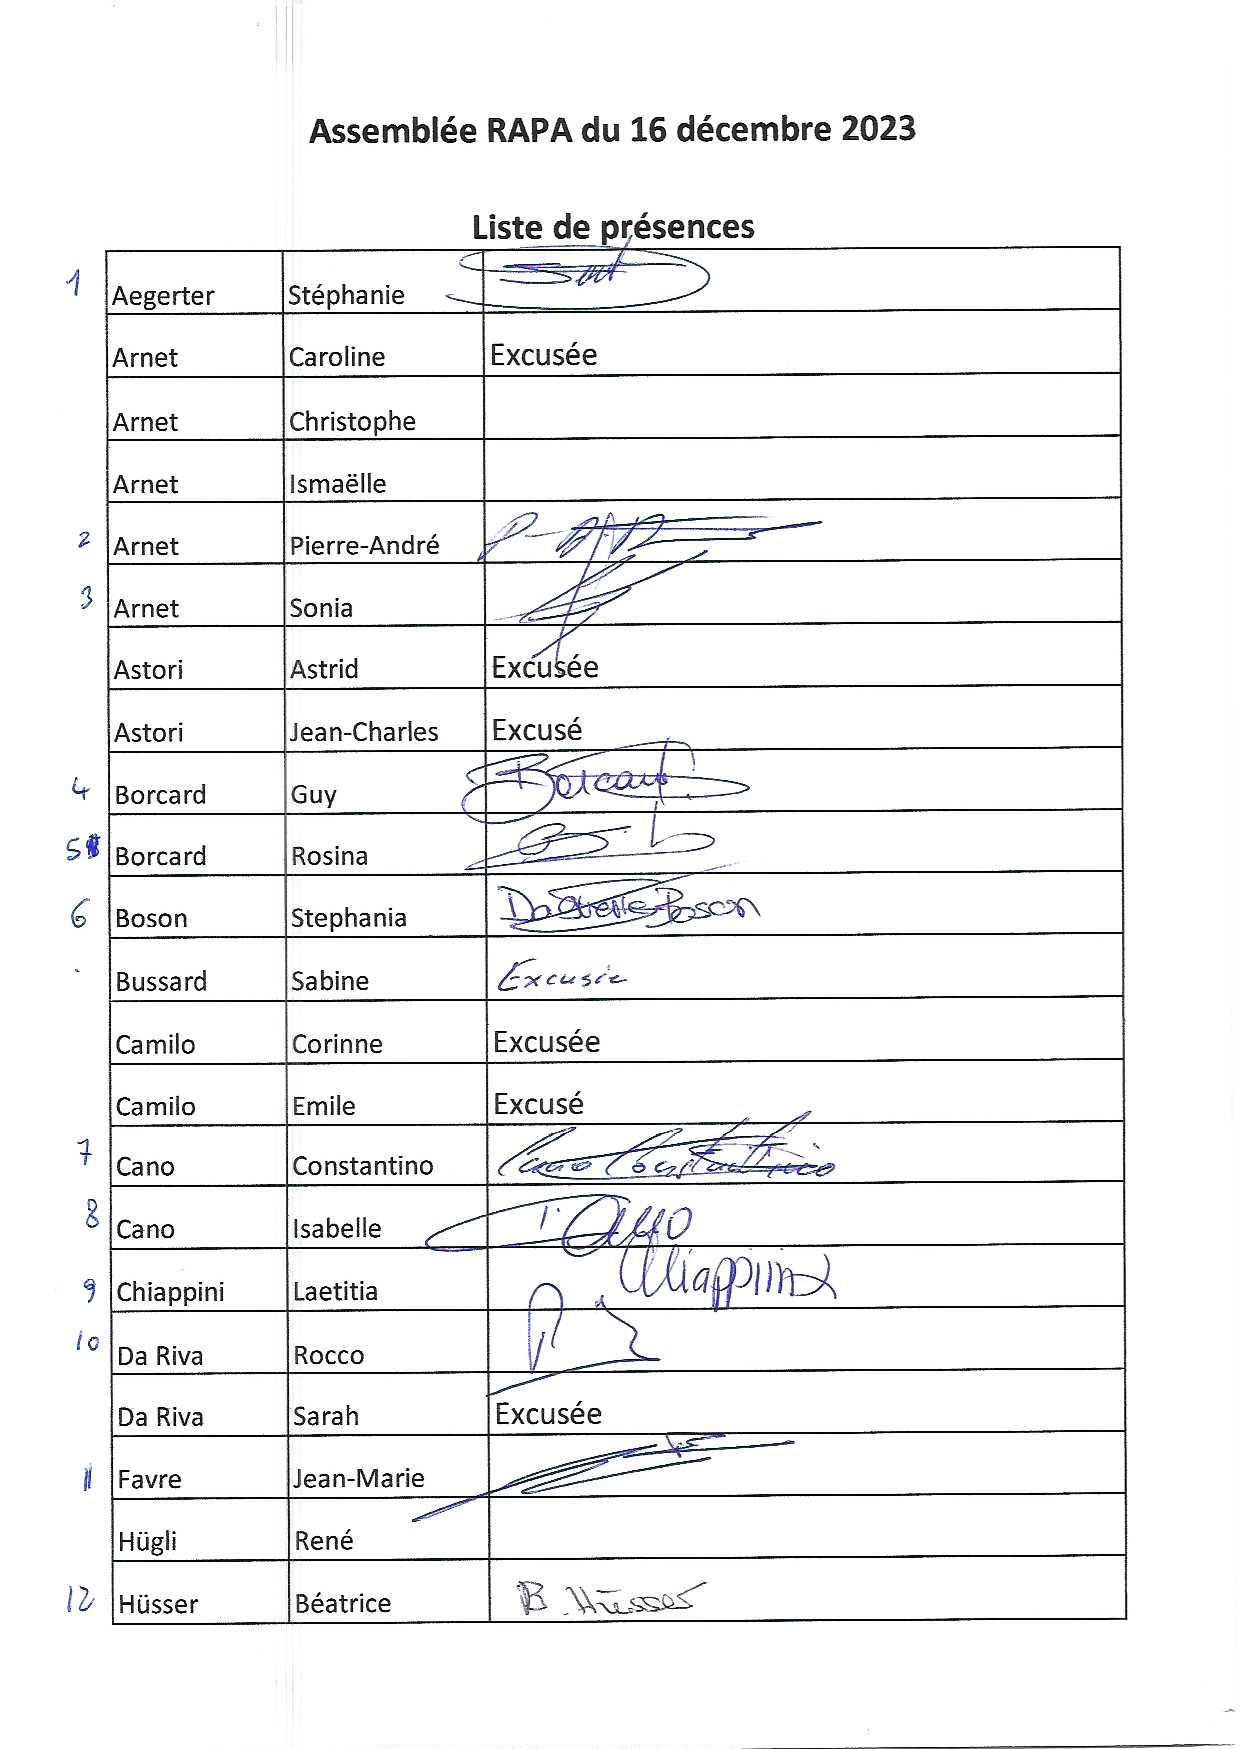 Assemblée RAPA du 16 décembre 2023
Liste de présences
1 Aegerter Stéphanie
Arnet Caroline Excusée
Arnet Christophe
Arnet Ismaëlle
2 Arnet Pierre-André
3 Arnet Sonia
Astori Astrid Excusée
Astori Jean-Charles Excusé
4 Borcard Guy Borcard
5 Borcard Rosina
6 Boson Stephania
Bussard Sabine Excusée
Camilo Corinne Excusée
Camilo Emile Excusé
7 Cano Constantino Cano Constantino
8 Cano Isabelle
9 Chiappini Laetitia Chiappini
10 Da Riva Rocco
Da Riva Sarah Excusée
11 Favre Jean-Marie
Hügli René
12 Hüsser Béatrice B. Hüsser